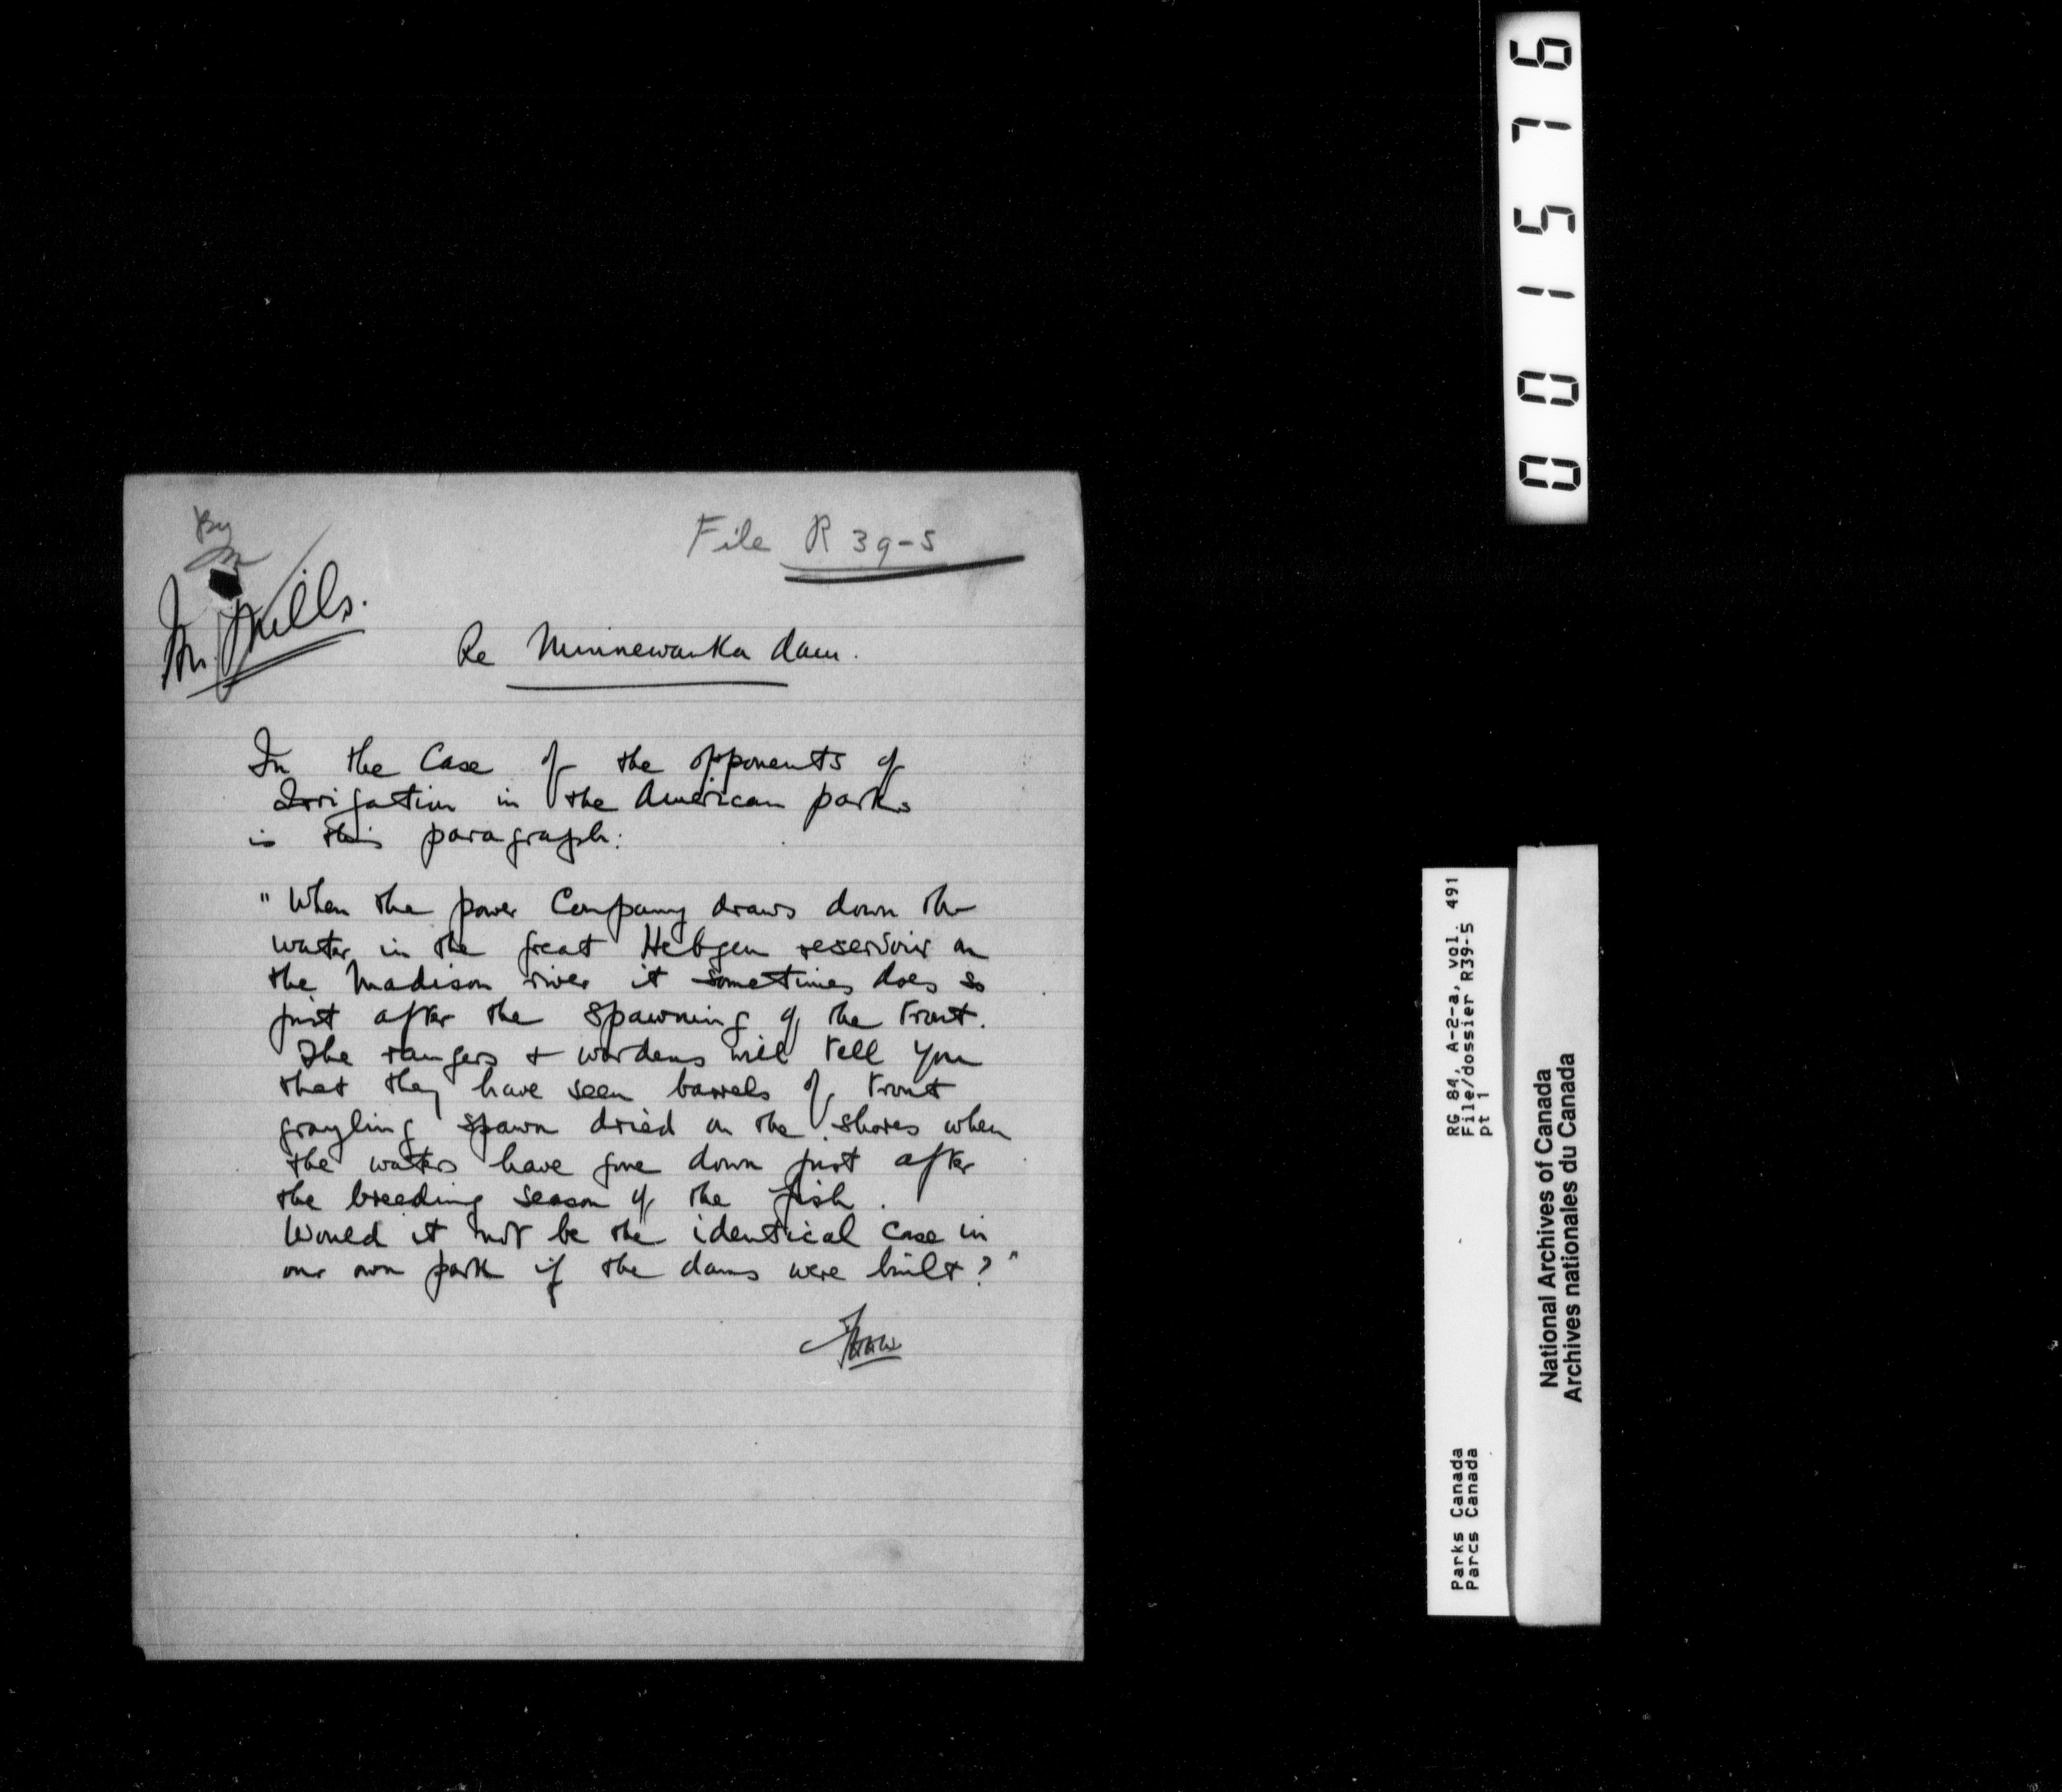 By
File R 39-5
Mr. Mills.
Re Minnewanka dam.
In the Case of the opponents of
Irrigation in the American parks
is this paragraph:
"When the power Company draws down the
water in the great Hebgen reservoir on
the Madison river it sometimes does so
just after the spawning of the trout.
The rangers & wardens will tell you
that they have seen barrels of trout
grayling spawn dried on the shores when
the waters have gone down just after
the breeding season of the fish.
Would it not be the identical case in
our own park if the dams were built?"
001576
RG 84, A-2-a, vol. 491
File/dossier R39-5
pt 1
Parks Canada
Parcs Canada
National Archives of Canada
Archives nationales du Canada